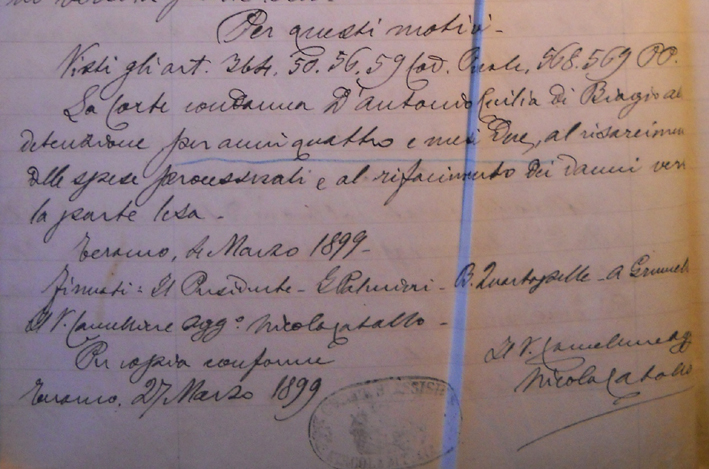 Per questi motivi -
Visti gli art. 364. 50. 56. 59 Cod. Penale, 568. 569 PP.
La Corte condanna D'Antonio Cecilia di Biagio
detenzione per anni quattro e mesi due, al risarcimen
delle spese processuali e al rifacimento dei danni vers
la parte lesa -
Teramo, 4 Marzo 1899 -
firmati: Il Presidente - - B. Quartapelle - A
Il V. Cancelliere agg° Nicola Cataldo -
Per copia conforme
Il V. Cancelliere agg
Teramo, 27 Marzo 1899
Nicola Cataldo